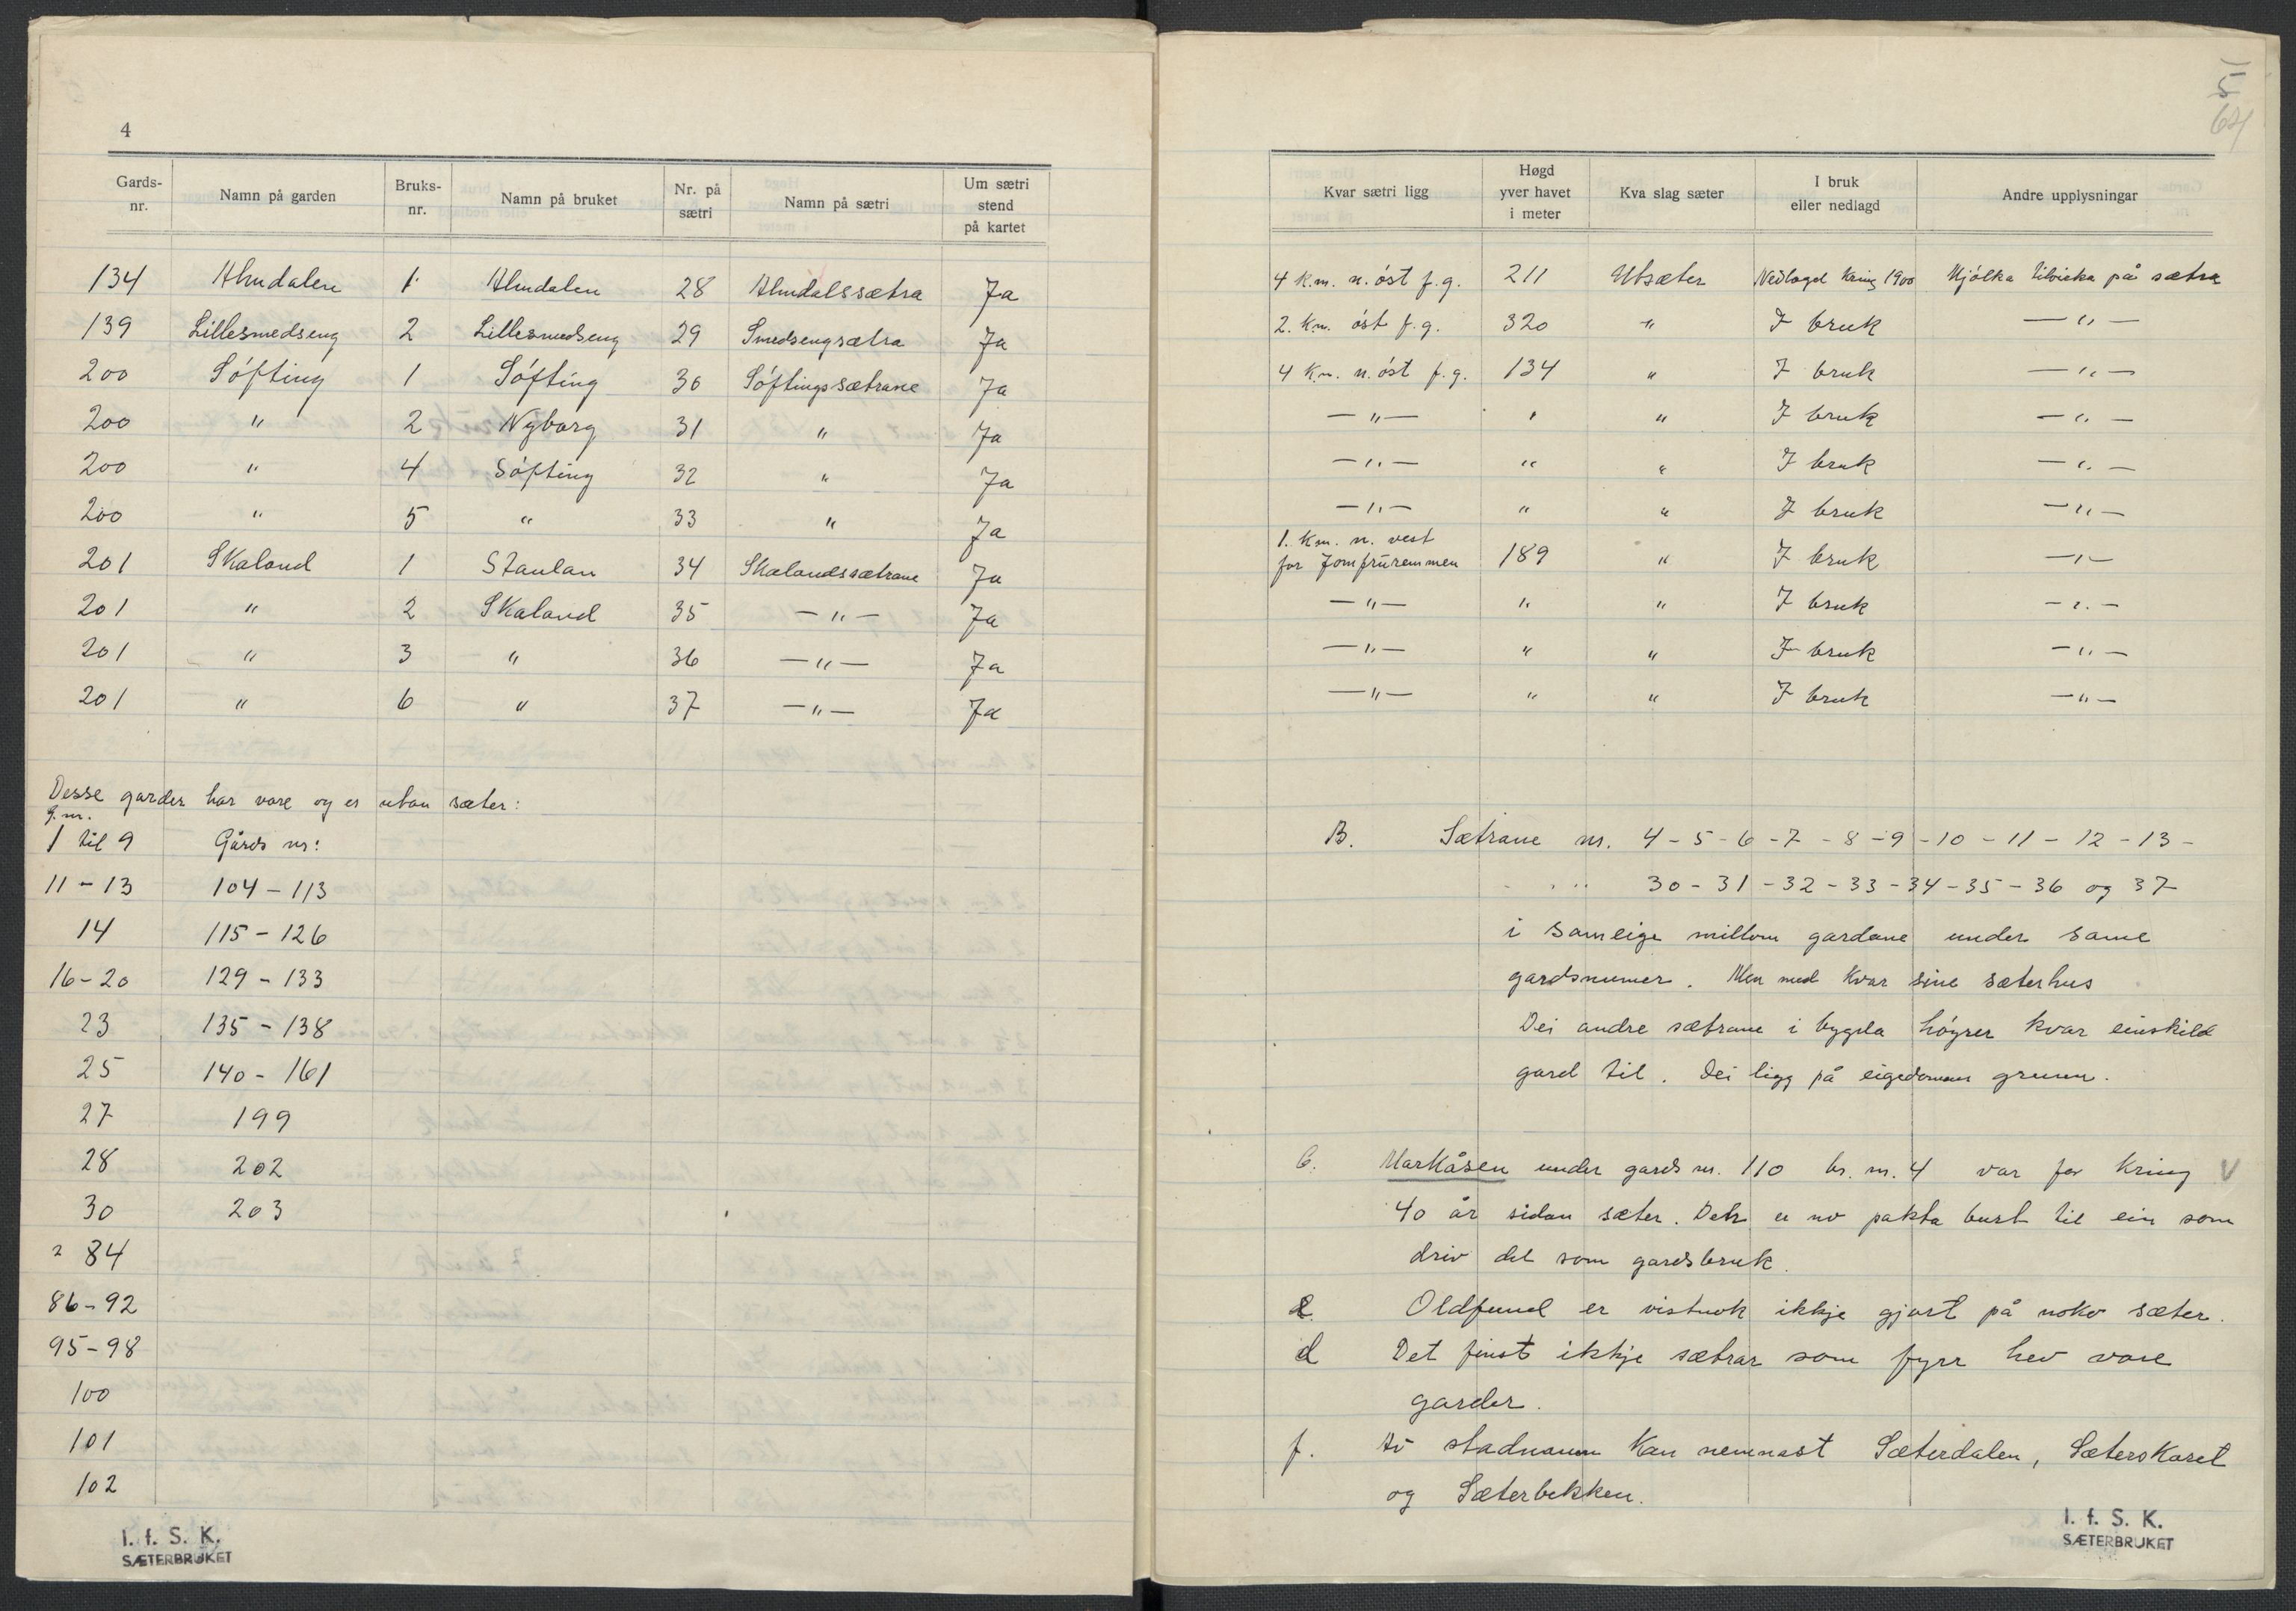 4
Gards-nr. Namn på garden Bruks-nr. Namn på bruket Nr. på sætri Namn på sætri Um sætri stend på kartet
134 Almdalen 1 Almdalen 28 Almdalssætra Ja
139 Lillesmedseng 2 Lillesmedseng 29 Smedsengsætra Ja
200 Søfting 1 Søfting 30 Søftingssætrane Ja
200 " 2 Nyborg 31 " Ja
200 " 4 Søfting 32 " Ja
200 " 5 " 33 " Ja
201 Skaland 1 Staulan 34 Skalandssætrane Ja
201 " 2 Skaland 35 — " — Ja
201 " 3 " 36 — " — Ja
201 " 6 " 37 — " — Ja
Desse garder har vore og er utan sæter:
g.nr.
1 til 9 Gårds nr:
11 - 13 104 - 113
14 115 - 126
16 - 20 129 - 133
23 135 - 138
25 140 - 161
27 199
28 202
30 203
84
86 - 92
95 - 98
100
101
102
I. f. S. K.
SÆTERBRUKET
5
64
Kvar sætri ligg Høgd yver havet i meter Kva slag sæter I bruk eller nedlagd Andre upplysningar
4 km. n. øst f. g. 211 Utsæter Nedlagd kring 1900 Mjølka tilvirka på sætra
2. km. øst f. g. 320 " I bruk — " —
4 km. n. øst f. g. 134 " I bruk — " —
— " — " " I bruk — " —
— " — " " I bruk — " —
— " — " " I bruk — " —
1. km. n. vest
for Jomfruremmen 189 " I bruk — " —
— " — " " I bruk — " —
— " — " " I bruk — " —
— " — " " I bruk — " —
B. Sætrane nr. 4 - 5 - 6 - 7 - 8 - 9 - 10 - 11 - 12 - 13 -
30 - 31 - 32 - 33 - 34 - 35 - 36 og 37
i sameige millom gardane under same
gardsnumer. Men med kvar sine sæterhus
Dei andre sætrane i bygda høyrer kvar einskild
gard til. Dei ligg på eigedomens grunn.
C. Markåsen under gards nr. 110 br. nr. 4 var for kring V
40 år sidan sæter. Det er no pakta burt til ein som
driv det som gardsbruk.
e. Oldfund er vistnok ikkje gjort på noko sæter.
d Det finst ikkje sætrar som fyrr hev vore
garder.
f. Av stadnamn kan nemnast Sæterdalen, Sæterskaret
og Sæterbekken.
I. f. S. K.
SÆTERBRUKET